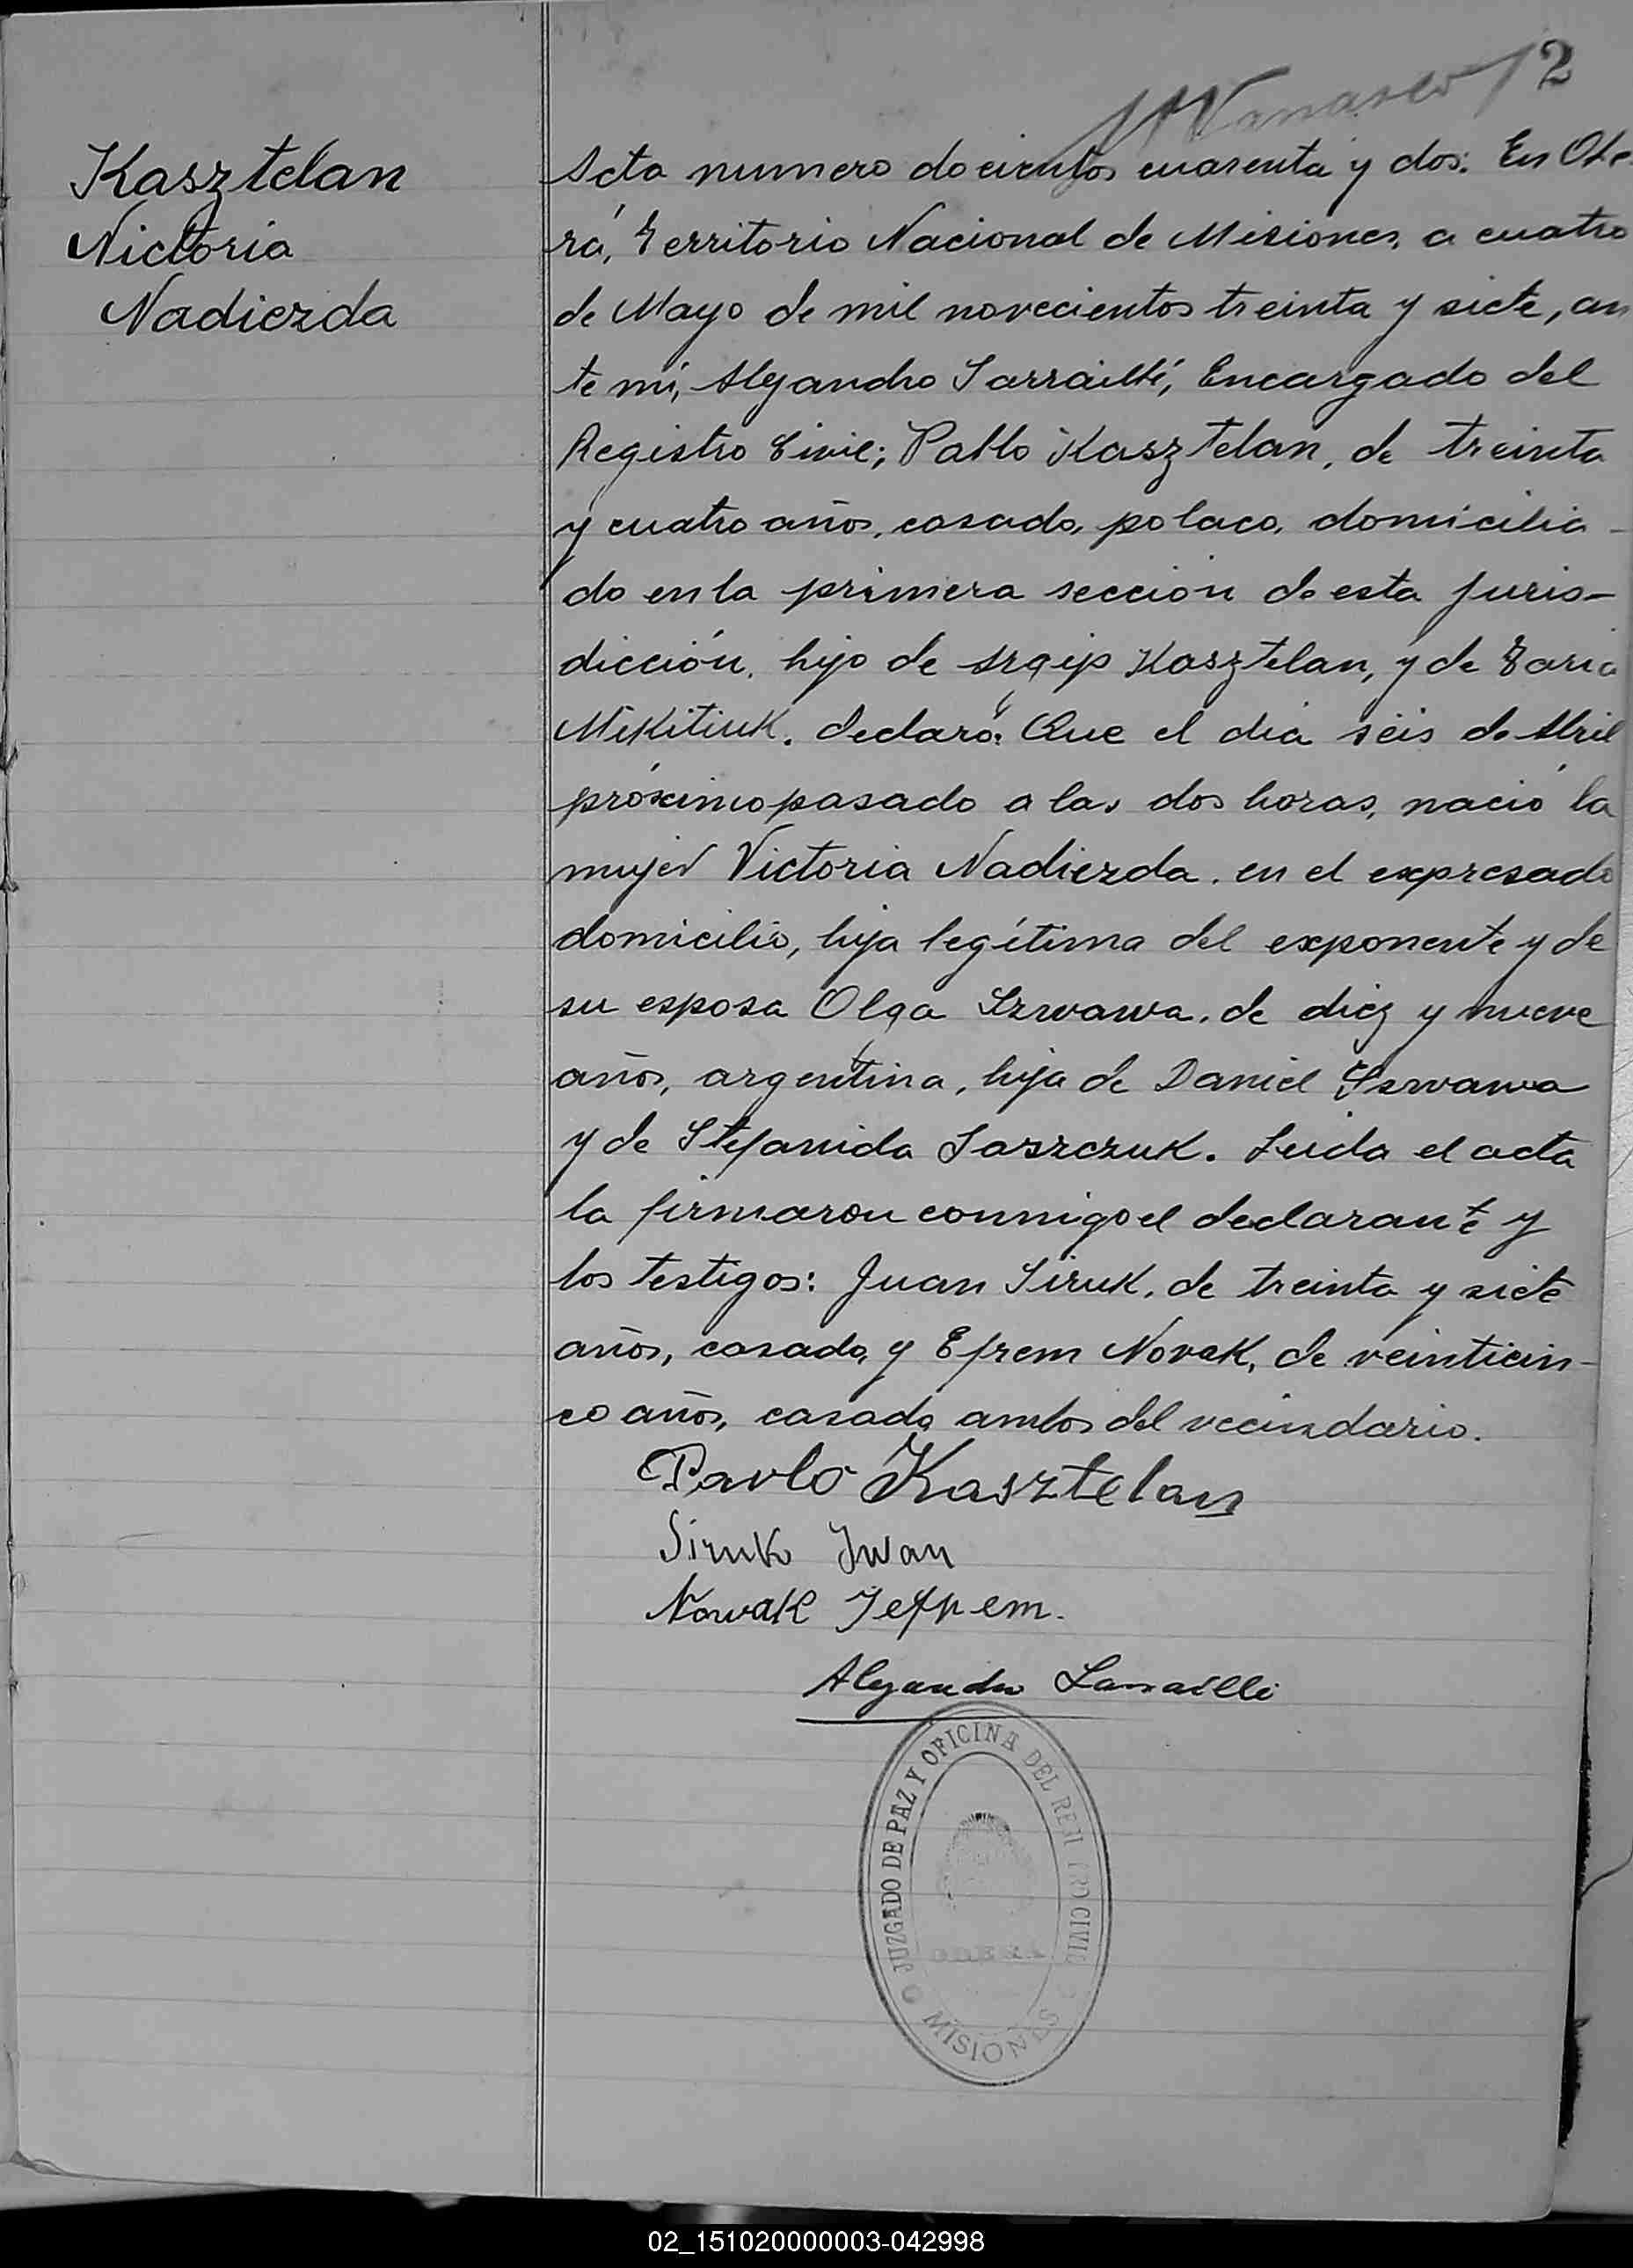 2
Kasztelan
Victoria
Nadiezda
Acta numero docientos cuarenta y dos: En Obe
rá, Territorio Nacional de Misiones, a cuatro
de Mayo de mil novecientos treinta y siete, an
te mí, Alejandro Sarrailhí, Encargado del
Registro Civil; Pablo Kasztelan, de treinta
y cuatro años, casado, polaco, domicilia-
do en la primera sección de esta juris-
dicción, hijo de Kasztelan, y de
Mikitiuk. declaró: Que el día séis de Abril
próximo pasado a las dos horas, nació la
mujer Victoria Nadiezda, en el expresado
domicilio, hija legítima del exponente y de
su esposa Olga Szwawa, de diez y nueve
años, argentina, hija de Daniel Szwawa
y de Stefanida Saszczuk. Leida el acta
la firmaron conmigo el declarante y
los testigos: Juan Siruk, de treinta y siete
años, casado, y Efrem Novak, de veinticin-
co años, casado, ambos del vecindario.
Pavlo Kasztelan
Siruk Iwan
Nowak Jefrem.
Alejandro
JUZGADO DE PAZ Y OFICINA DEL REGISTRO CIVIL
OBERA
MISIONES
02_151020000003-042998